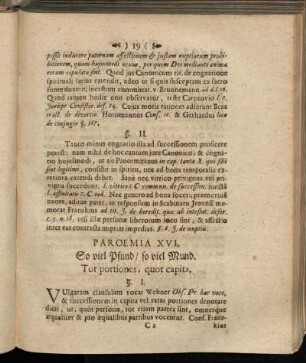 ) 19 (
possit inducere paternam affectionem & justam nuptiarum prohi-
bitionem, quam hujusmodi nexus, per quem Deo mediante anima
rerum copulatæ sint. Quod jus Canonicum tit. de cognatione
spirituali latius extendit, adeo ut sponsi susceptam ex sacro
fonte ducere, incestum committat. v. Brunnemann. ad d. l. 26.
Quod tamen hodie non observatur, teste Carpzovio l. 2.
Jurispr. Consistor. def. 14. Cujus moris rationes adferunt Beza
tract. de divortiis. Hotomannus Cons. & Gerhardus loco
de conjugio §.
§. II.
Tanto minus cognatio illa ad successionem proficere
potest: nam nihil de hoc cautum jure Canonico: & cognatio
hujusmodi, ut ait Panormitanus in cap. tanta X. qui filii
sint legitimi, consistit in spiritu, nec ad bona temporalia ex-
teriora extendi debet. Sane nec vitrico privigni vel privigno
cius successio defertur. l. ultim. C. commun. de succession. juncta
l. affinitatis C. eod. Nec genero ad bona soceri, præmortua
uxore, aditus patet, ut responsum in Scabinatu Jenensi me-
morat Frantzkius ad tit. ff. de heredit. quæ ab intestat. defer.
c. 7. n. 18. etsi post liberorum interitum locus sit, & affectio
inter eos contractis nuptiis impediat. §. 6. J. de nuptiis.
PAROEMIA XVI.
So viel Pfund / so viel Mund.
Tot portiones, quot capita.
§. I.
VUlgatam clausulam vocat Wehner Obs. Pr. hac voce,
& successionem in capita vel ratas portiones denotare
dicit, ut, quot personæ, tot etiam partes sint, omnesque
æqualiter & pro æqualibus partibus vocentur. Conf. Frantz-
C 2
kius